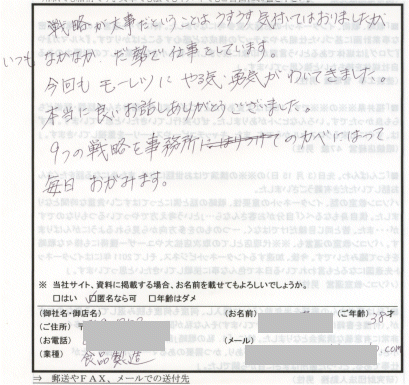 戦略が大事だということはうすうす気付いてはおりましたが
なかなか
いつも だ勢で仕事をしています。
今回もモーレツにやる気・勇気がわいてきました。
本当に良いお話しありがとうございました。
9つの戦略を事務所のカベにはって
毎日おがみます。
※ 当社サイト、資料に掲載する場合、お名前を載せてもよろしいでしょうか。
□はい □匿名なら可 □年齢はダメ
(御社名・御店名) (お名前) (ご年齢) 38才
(ご住所) 〒
(お電話) (メール) .com
(業種) 食品製造
⇒ 郵送やFAX、メールでの送付先